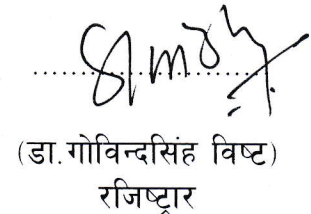 (डा.गोविन्दसिंह विष्ट)
रजिष्ट्रार